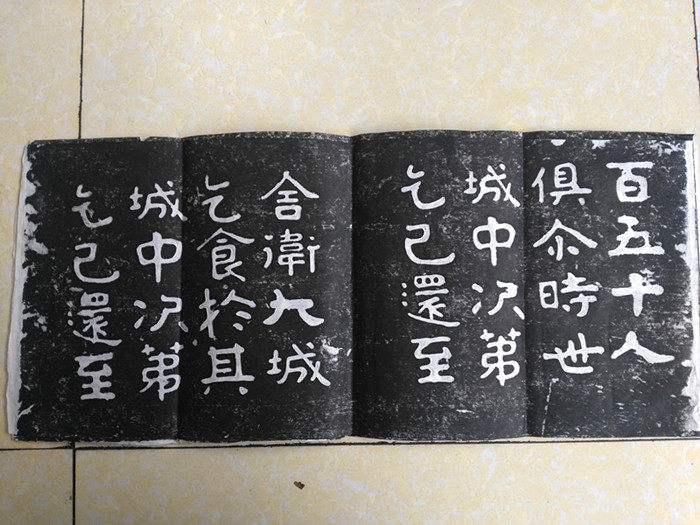 百五十人
俱尒時世
城中次第
乞已還至
舍衛大城
乞食於其
城中次第
乞已還至